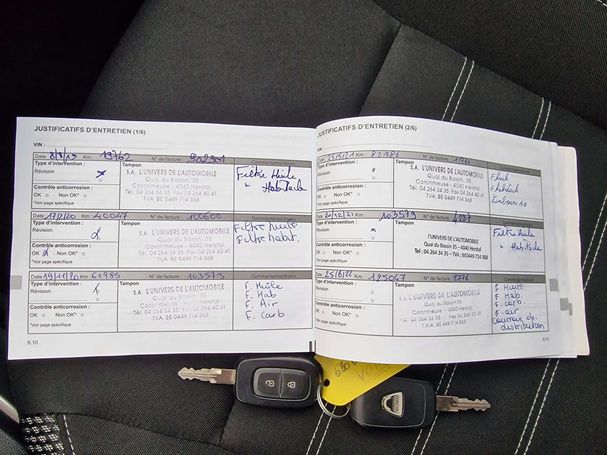 JUSTIFICATIFS D'ENTRETIEN (1/6)
VIN :
Date Km 19762 N° de facture :
Type d'intervention : Tampon
Révision
S.A. L'UNIVERS DE L'AUTOMOBILE
Quai du Bassin, 35
Coronmeuse - 4040 Herstal
Tél. 04 264 34 35 - Fax 04 264 40 41
TVA. BE 0449 714 368
Filtre Huile
" Habitacle
Contrôle anticorrosion :
OK □ Non OK* □
*Voir page spécifique
Date Km 40047 N° de facture : 100600
Type d'intervention : Tampon
Révision
S.A. L'UNIVERS DE L'AUTOMOBILE
Quai du Bassin, 35
Coronmeuse - 4040 Herstal
Tél. 04 264 34 35 - Fax 04 264 40 41
TVA BE 0449 714 368
Filtre huile
Filtre habit.
Contrôle anticorrosion :
OK Non OK* □
*Voir page spécifique
Date 19/11/20 Km 61989 N° de facture : 103573
Type d'intervention : Tampon
Révision
S.A. L'UNIVERS DE L'AUTOMOBILE
Quai du Bassin, 35
Coronmeuse - 4040 Herstal
Tél. 04 264 34 35 - Fax 04 264 40 41
TVA BE 0449 714 368
F. Huile
F. Hab
F. Air
F. Carb
Contrôle anticorrosion :
OK □ Non OK* □
*Voir page spécifique
6.10
JUSTIFICATIFS D'ENTRETIEN (2/6)
VIN :
Date Km 82186 N° de facture :
Type d'intervention : Tampon
Révision
S.A. L'UNIVERS DE L'AUTOMOBILE
Quai du Bassin, 35
Coronmeuse - 4040 Herstal
Tél. 04 264 34 35 - Fax 04 264 40 41
TVA BE 0449 714 368
Contrôle anticorrosion :
OK □ Non OK* □
*Voir page spécifique
Date 20/12/21 Km 103579 N° de facture :
Type d'intervention : Tampon
Révision
S.A. L'UNIVERS DE L'AUTOMOBILE
Quai du Bassin, 35
Coronmeuse - 4040 HERSTAL
Tél. 04/264 34 35 - TVA: BE0449 714 368
Filtre Huile
" Habitacle
Contrôle anticorrosion :
OK □ Non OK* □
*Voir page spécifique
Date Km 125067 N° de facture : 2776
Type d'intervention : Tampon
Révision
S.A. L'UNIVERS DE L'AUTOMOBILE
Quai du Bassin, 35
Coronmeuse - 4040 Herstal
Tél. 04 264 34 35 - Fax 04 264 40 41
TVA BE 0449 714 368
F. Huile
F. Hab.
F. carb.
F. air
courroie de
distribution
Contrôle anticorrosion :
OK □ Non OK* □
*Voir page spécifique
6.11